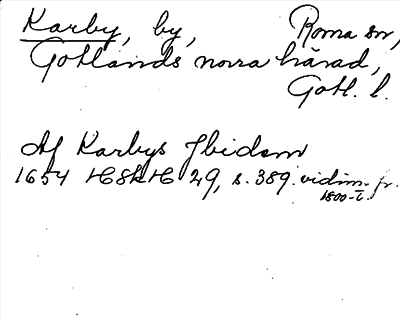 Karby, by, Roma sn,
Gotlands norra härad,
Gotl. l.
Af Karbys Ibidem
1654 HSH 29, s. 389. vidim. fr.
1800-t.